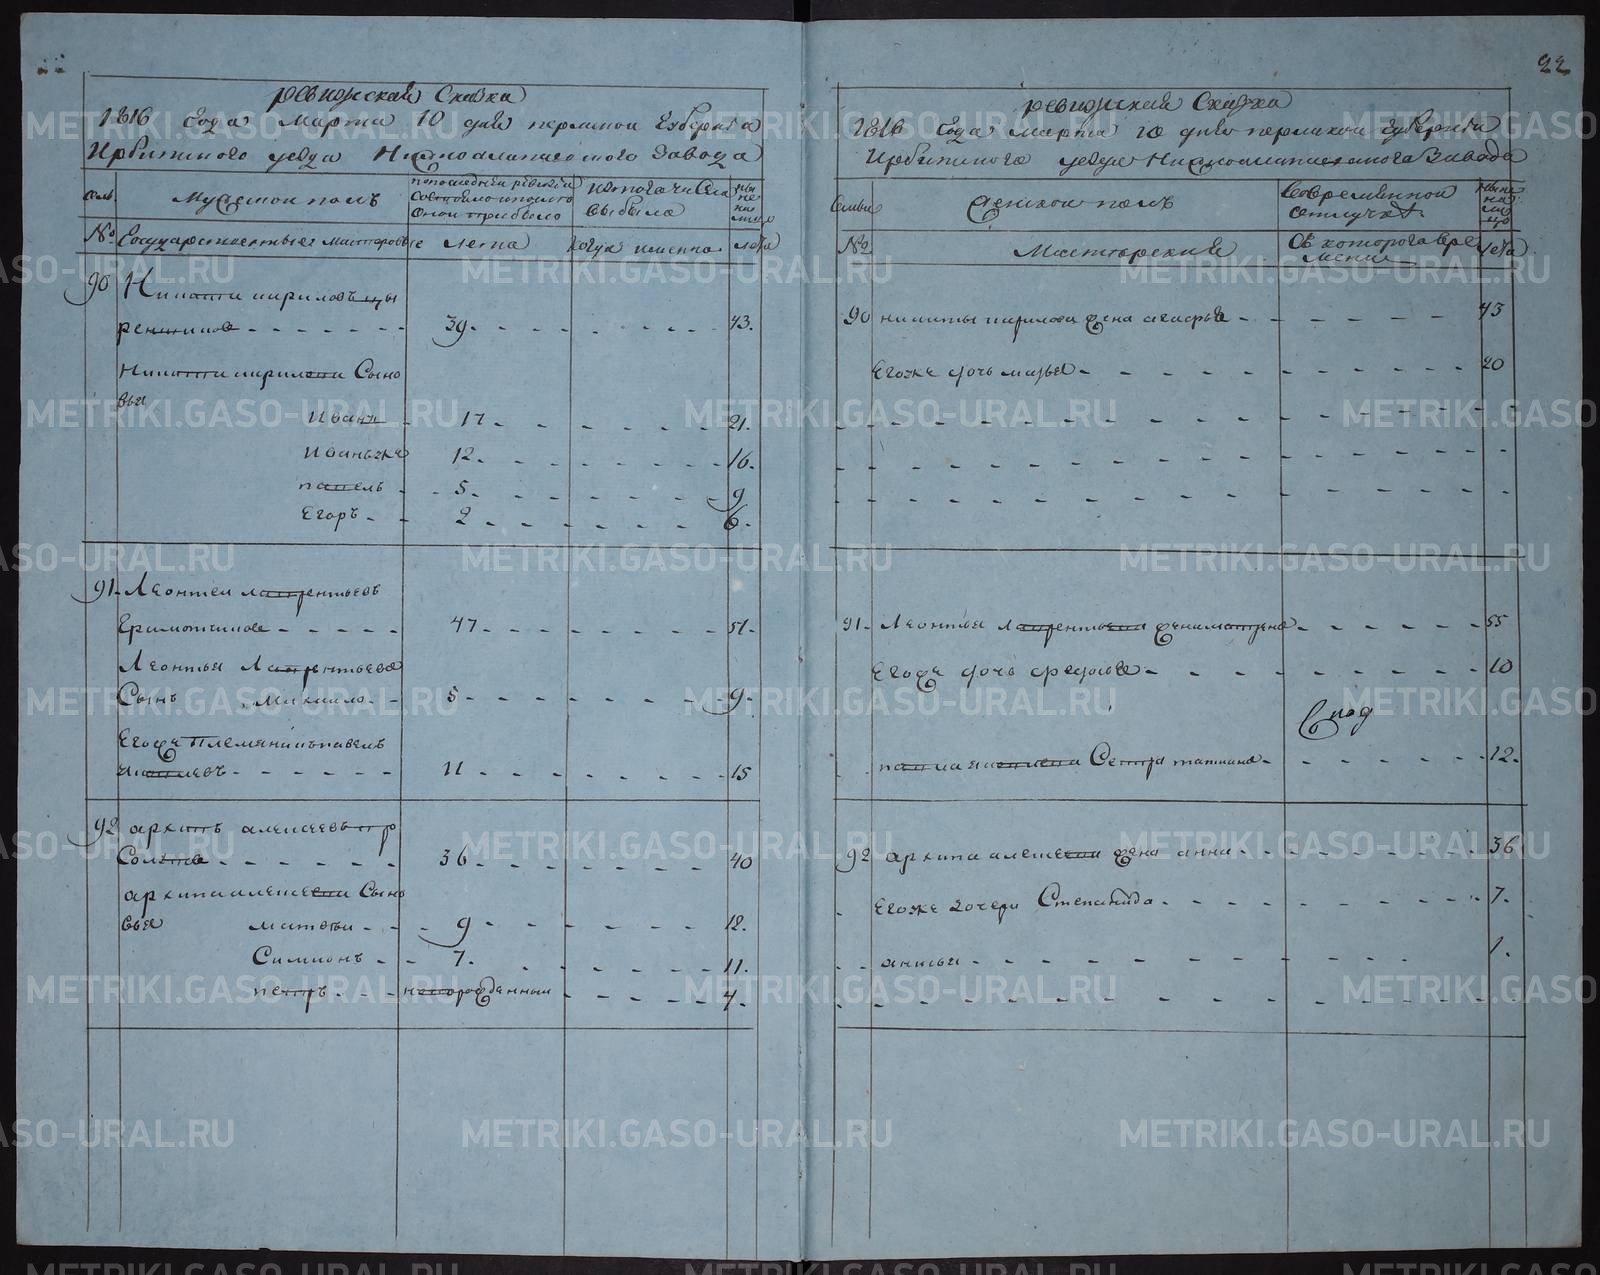 22
Ревижская Скаска
1816 Года Марта 10 дня пермской Губернiи
Ирбитского уезда Нижноалапаевского Завода
Мужескои полъ
по последнеи ревизiи
состояло и после
онои прибыло
ныне
на
лицо
№ Государственные мастеровые
лета
когда именно
лета
90 Никита кириловъ
39
43.
Никиты кирилова Сыно
вья
Иванъ 17 21.
Иванъ же 12. 16.
павелъ 5. 9
Егоръ 2 6.
91. Леонтеи лаврентьевъ
47 51.
Леонтья Лаврентьева
Сынъ Михаило 5 9.
Егоже Племянникъ павелъ
11 15
92 архипъ алексеевъ
36 40
архипа алексеева Сыно
вья матвеи 9 12.
Симионъ 7. 11.
петръ новорожденныи 4.
Ревижская Скаска
1816 Года марта 10 дня пермскои Губернiи
Ирбитского уезда Нижноалапаевского Завода
Семьи
Женскои полъ
Во временнои
отлучке
ныне
на
ли
цо
№
Мастерскiя
Съ которого вре
мени
Лета
90 никиты кирилова жена 43
Егоже дочь марья 20
91. Леонтья лаврентьева жена матрена 55
Егоже дочь федосья 10
Сестра татьяна 12.
92 архипа алексеева жена анна 36
Егоже дочери Степанида 7.
1.